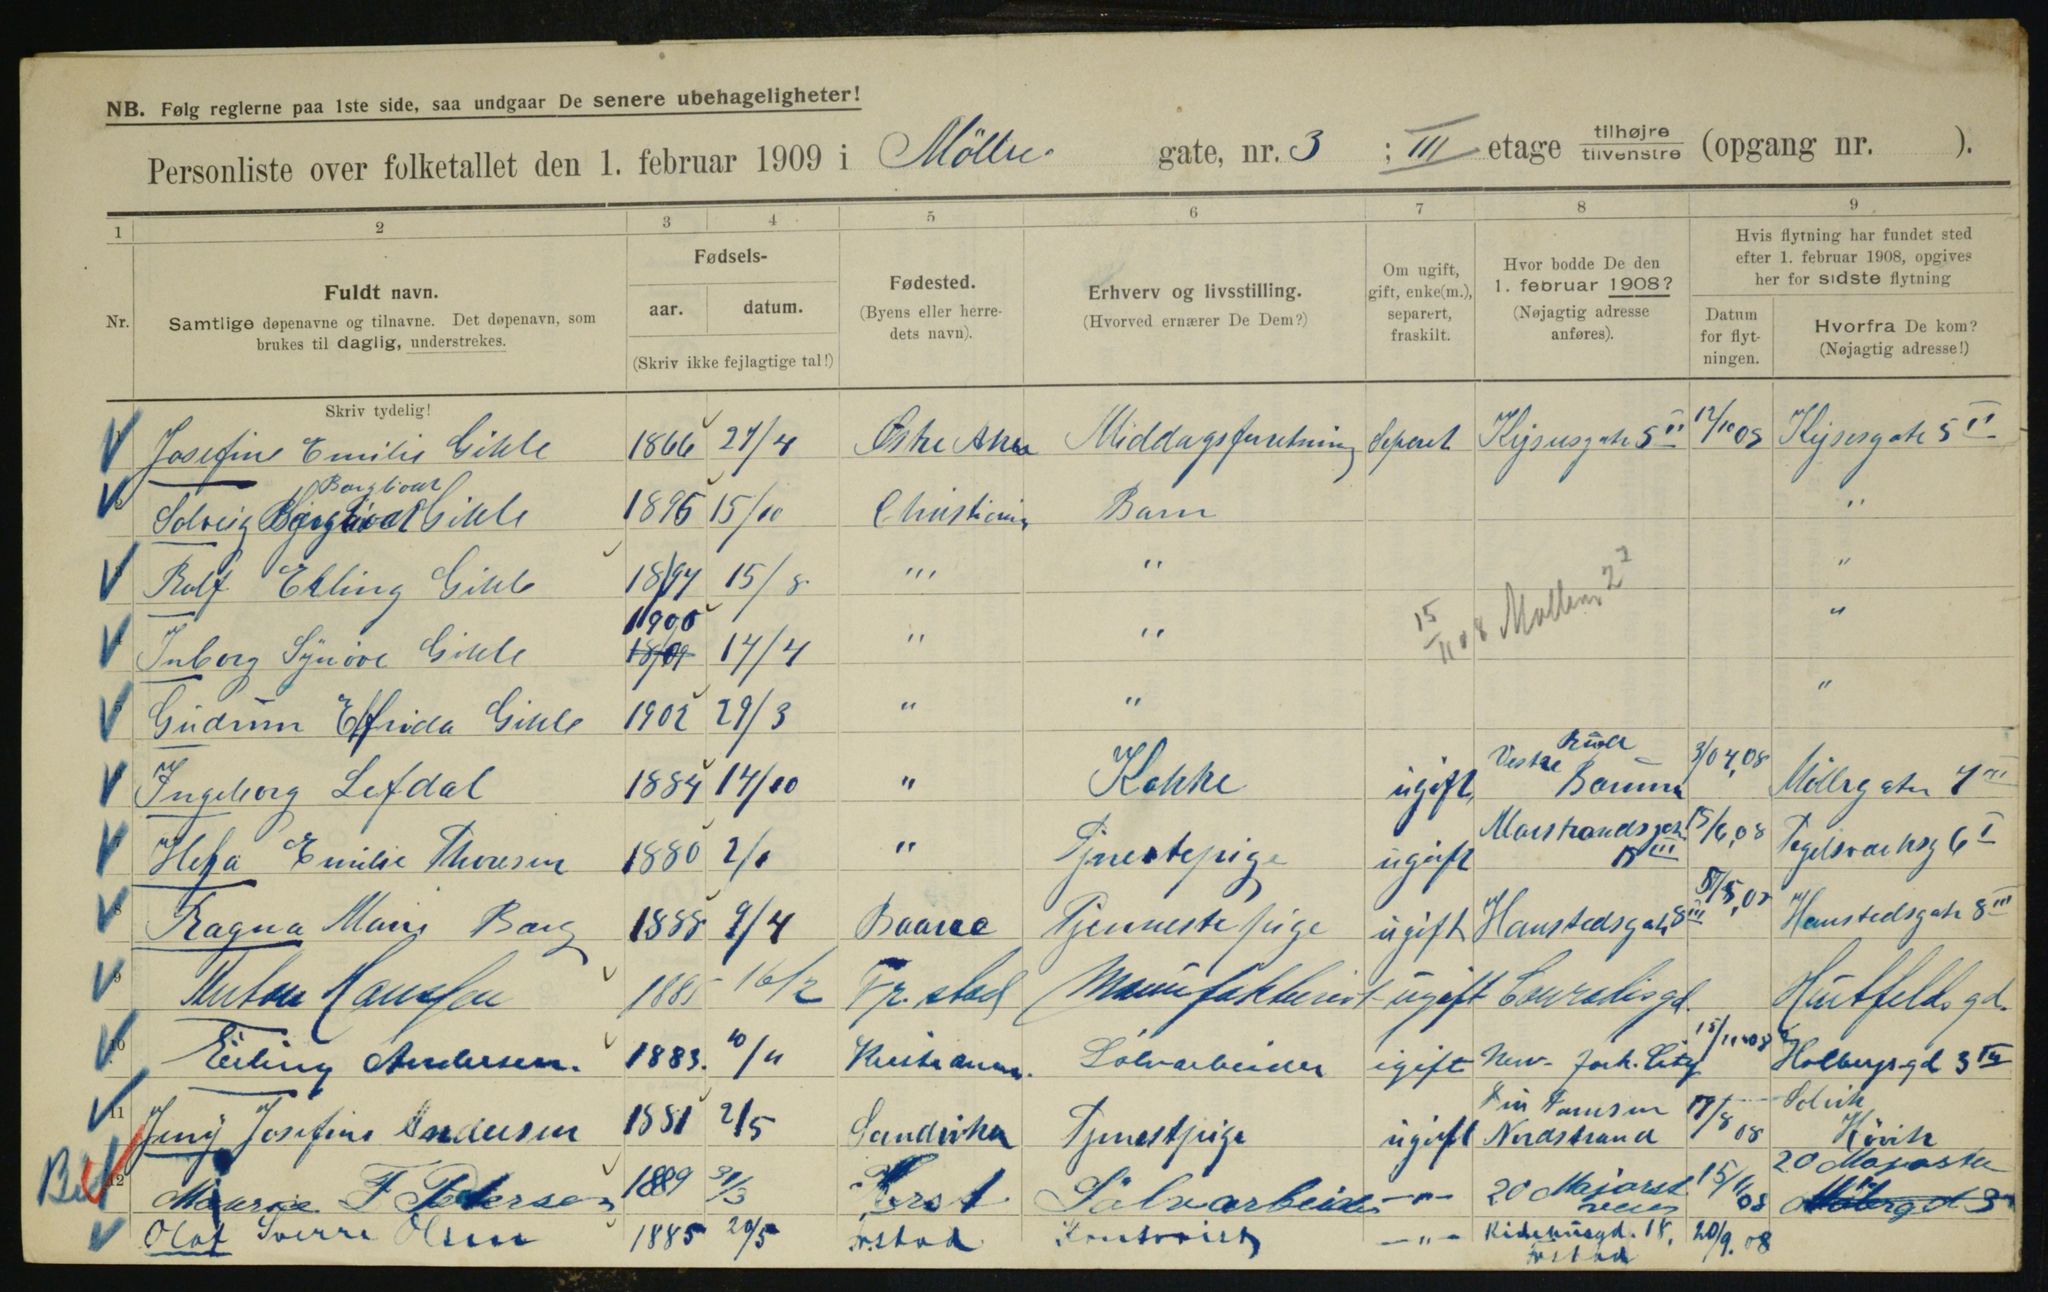 NB. Følg reglerne paa 1ste side, saa undgaar De senere ubehageligheter!
Personliste over folketallet den 1. februar 1909 i Möller gate, nr. 3 ; III etage tilhøjre tilvenstre (opgang nr. ).
1 2 3 4 5 6 7 8 9
Nr.
Fuldt navn.
Samtlige døpenavne og tilnavne. Det døpenavn, som
brukes til daglig, understrekes.
Skriv tydelig!
Fødsels-
aar. datum.
(Skriv ikke fejlagtige tal!)
Fødested.
(Byens eller herre-
dets navn).
Erhverv og livsstilling.
(Hvorved ernærer De Dem?)
Om ugift,
gift, enke(m.),
separert,
fraskilt.
Hvor bodde De den
1. februar 1908?
(Nøjagtig adresse
anføres).
Hvis flytning har fundet sted
efter 1. februar 1908, opgives
her for sidste flytning
Datum
for flyt-
ningen.
Hvorfra De kom?
(Nøjagtig adresse!)
Josefine Emilie Gihle 1866 27/4 Østre Aker Middagsforretning Seperet 5 II 12/10 08 5 II
Borgliot
Solveig Gihle 1895 15/10 Christiania Barn "
Rolf Erling Gihle 1894 15/8 " " "
1900
Inborg Synöve Gihle 14/4 " " "
15/11 08
Gudrun Elfrida Gihle 1902 29/3 " " "
Ingeborg Lefdal 1884 14/10 " Kokke ugift, Vestre Bærum 3/04,08 Möllergaten 4 III
Helga Emilie Thoresen 1880 2/1 " Tjenestepige ugift Marstrandsgat. III 15/6,08 6 I
8 Ragna Marie Borg 1888 9/4 Tjennestepige ugift Hanstedsgate 8 III Hanstedsgate 8 III
9 Anton Hanssen 1885 16/2 Fr.stad Manufakturist ugift Conradisgd. Huitfeldsgd.
10 Erling Andersen. 1883. 10/11 Kristiania. Sölvarbeider ugift New-York City 15/11 08 Holbergsgd 3
11 Jeny Josefine Andersen 1881 2/5 Sandviken Tjenestpige ugift Nordstrand 17/8 08 Solvik Hövik
12 F Pedersen 1889 31/3 Sölvarbeider -"- 20 Majorst veien 15/11 08 20 Majorstu
Olaf Sverre Olsen 1885 20/5 Fr.stad Kontorist -"- 18, Fr.stad 20/9.08